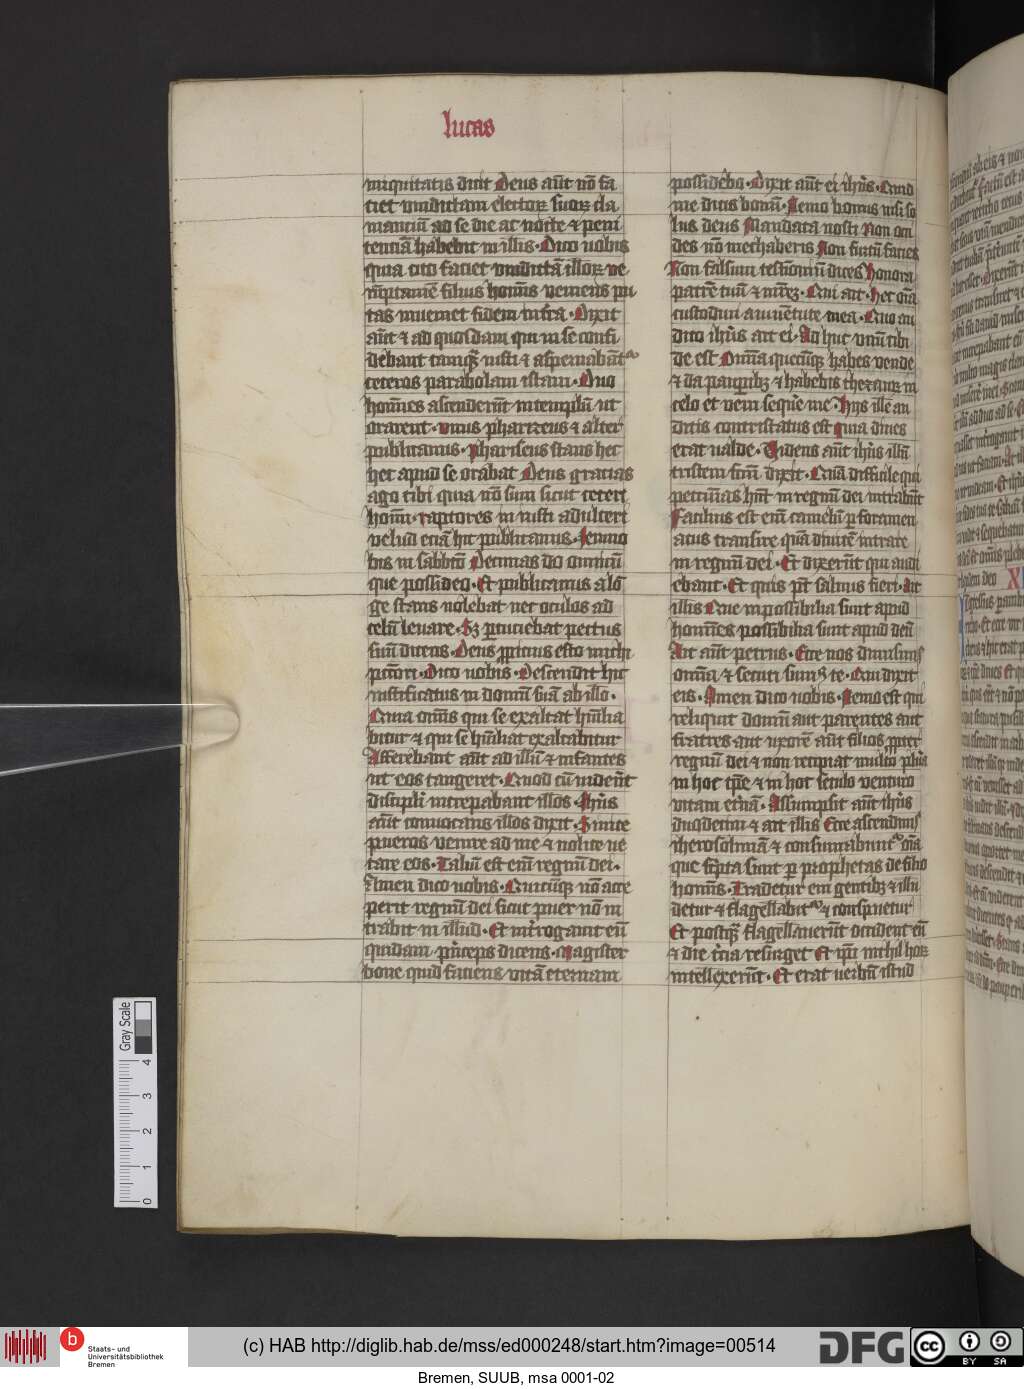 lucas
iniquitatis dicit Deus aūt nō fa
ciet vindictam electorꝝ suorꝝ cla
mancium ad se die ac nocte ⁊ peni
tenciam habebit in illis · Dico uobis
quia cito faciet vindictā illorꝝ ve
rūptamē filius homīs veniens pu
tas inueniet fidem in terra · Dixit
aūt ⁊ ad quosdam qui in se confi
debant tamqꝫ iusti ⁊ aspernabāt᷑
ceteros parabolam istam · Duo
homīes ascenderūt in templū ut
orarent · vnus phariseus ⁊ alter
publicanus · Phariseus stans hec
hec apud se orabat Deus gracias
ago tibi quia nō sum sicut ceteri
homī · raptores in iusti adulteri
velud eciā hic publicanus · Ieiuno
bis in sabbto Decimas do omniū
que possideo · Et publicanus a lō
ge stans nolebat nec oculos ad
celū leuare · Sꝫ ꝑcuciebat pectus
suū dicens · Deus ꝓpicius esto michi
pctōri · Dico uobis · Descendit hic
iustificatus in domū suā ab illo ·
Quia omīs qui se exaltat hūilia
bitur ⁊ qui se hūiliat exaltabitur
Afferebant aūt ad illū ⁊ infantes
ut eos tangeret · Quod cū viderēt
discipli increpabant illos · Ihūs
aūt conuocans illos dixit · Sinite
pueros venire ad me ⁊ nolite ve
tare eos · Taliū est eī regnū dei ·
Amen dico uobis · Quicūqꝫ nō acce
perit regnū dei sicut puer nō in
trabit in illud · Et īrogauit eū
quidam prīceps dicens · Magister
bone quid faciens vitā eternam
possidebo · Dixit aūt ei ihūs · Quid
me dicis bonū · Nemo bonus nisi so
lus deus Mandata nosti Non occi
des nō mechaberis Non furtū facies
Non falsum testimoniū dices Honora
patrē tuū ⁊ mrēꝫ · Qui ait · hec oīa
custodiui a iuuētute mea · Quo au
dito ihūs ait ei · Ad huc vnū tibi
de est Omīa quecūqꝫ habes vende
⁊ da pauꝑibꝫ ⁊ habebis thezaurꝫ in
celo et veni sequē me · Hiis ille au
ditis contristatus est quia diues
erat ualde · Videns aūt ihūs illū
tristem fcm̄ dixit · Quā difficile qui
peccunias hn̄t in regnū dei intrabūt
Facilius est eī camelū ꝑ foramen
acus transire quā diuitē intrare
in regnū dei · Et dixerūt qui audi
ebant · Et quis pt̄ saluus fieri · Ait
illis Que inpossibilia sunt apud
homīes possibilia sunt apud deū
Ait aūt petrus · Ecce nos dimisimꝰ
omīa ⁊ secuti sumꝰ te · Qui dixit
eis · Amen dico uobis · Nemo est qui
reliquit domū aut parentes aut
fratres aut vxorē aūt filios ꝓpter
regnū dei ⁊ non recipiat multo plura
in hoc tpe ⁊ in hoc seculo venturo
vitam eternā · Assumpsit aūt ihūs
duodecim ⁊ ait illis Ecce ascendimꝰ
iherosolimā ⁊ consūmabunt᷑ oīa
que scpta sunt ꝑ prophetas de filio
homīs · Tradetur eī gentibꝫ ⁊ illu
detur ⁊ flagellabit᷑ ⁊ conspuetur
Et postqꝫ flagellauerūt occident eū
⁊ die tercia resurget Et ipī nichil horꝝ
intellexerūt · Et erat uerbū istud
Gray Scale
4
3
2
1
0
Staats- und
Universitätsbibliothek
Bremen
(c) HAB http://diglib.hab.de/mss/ed000248/start.htm?image=00514
DFG
cc
BY SA
Bremen, SUUB, msa 0001-02